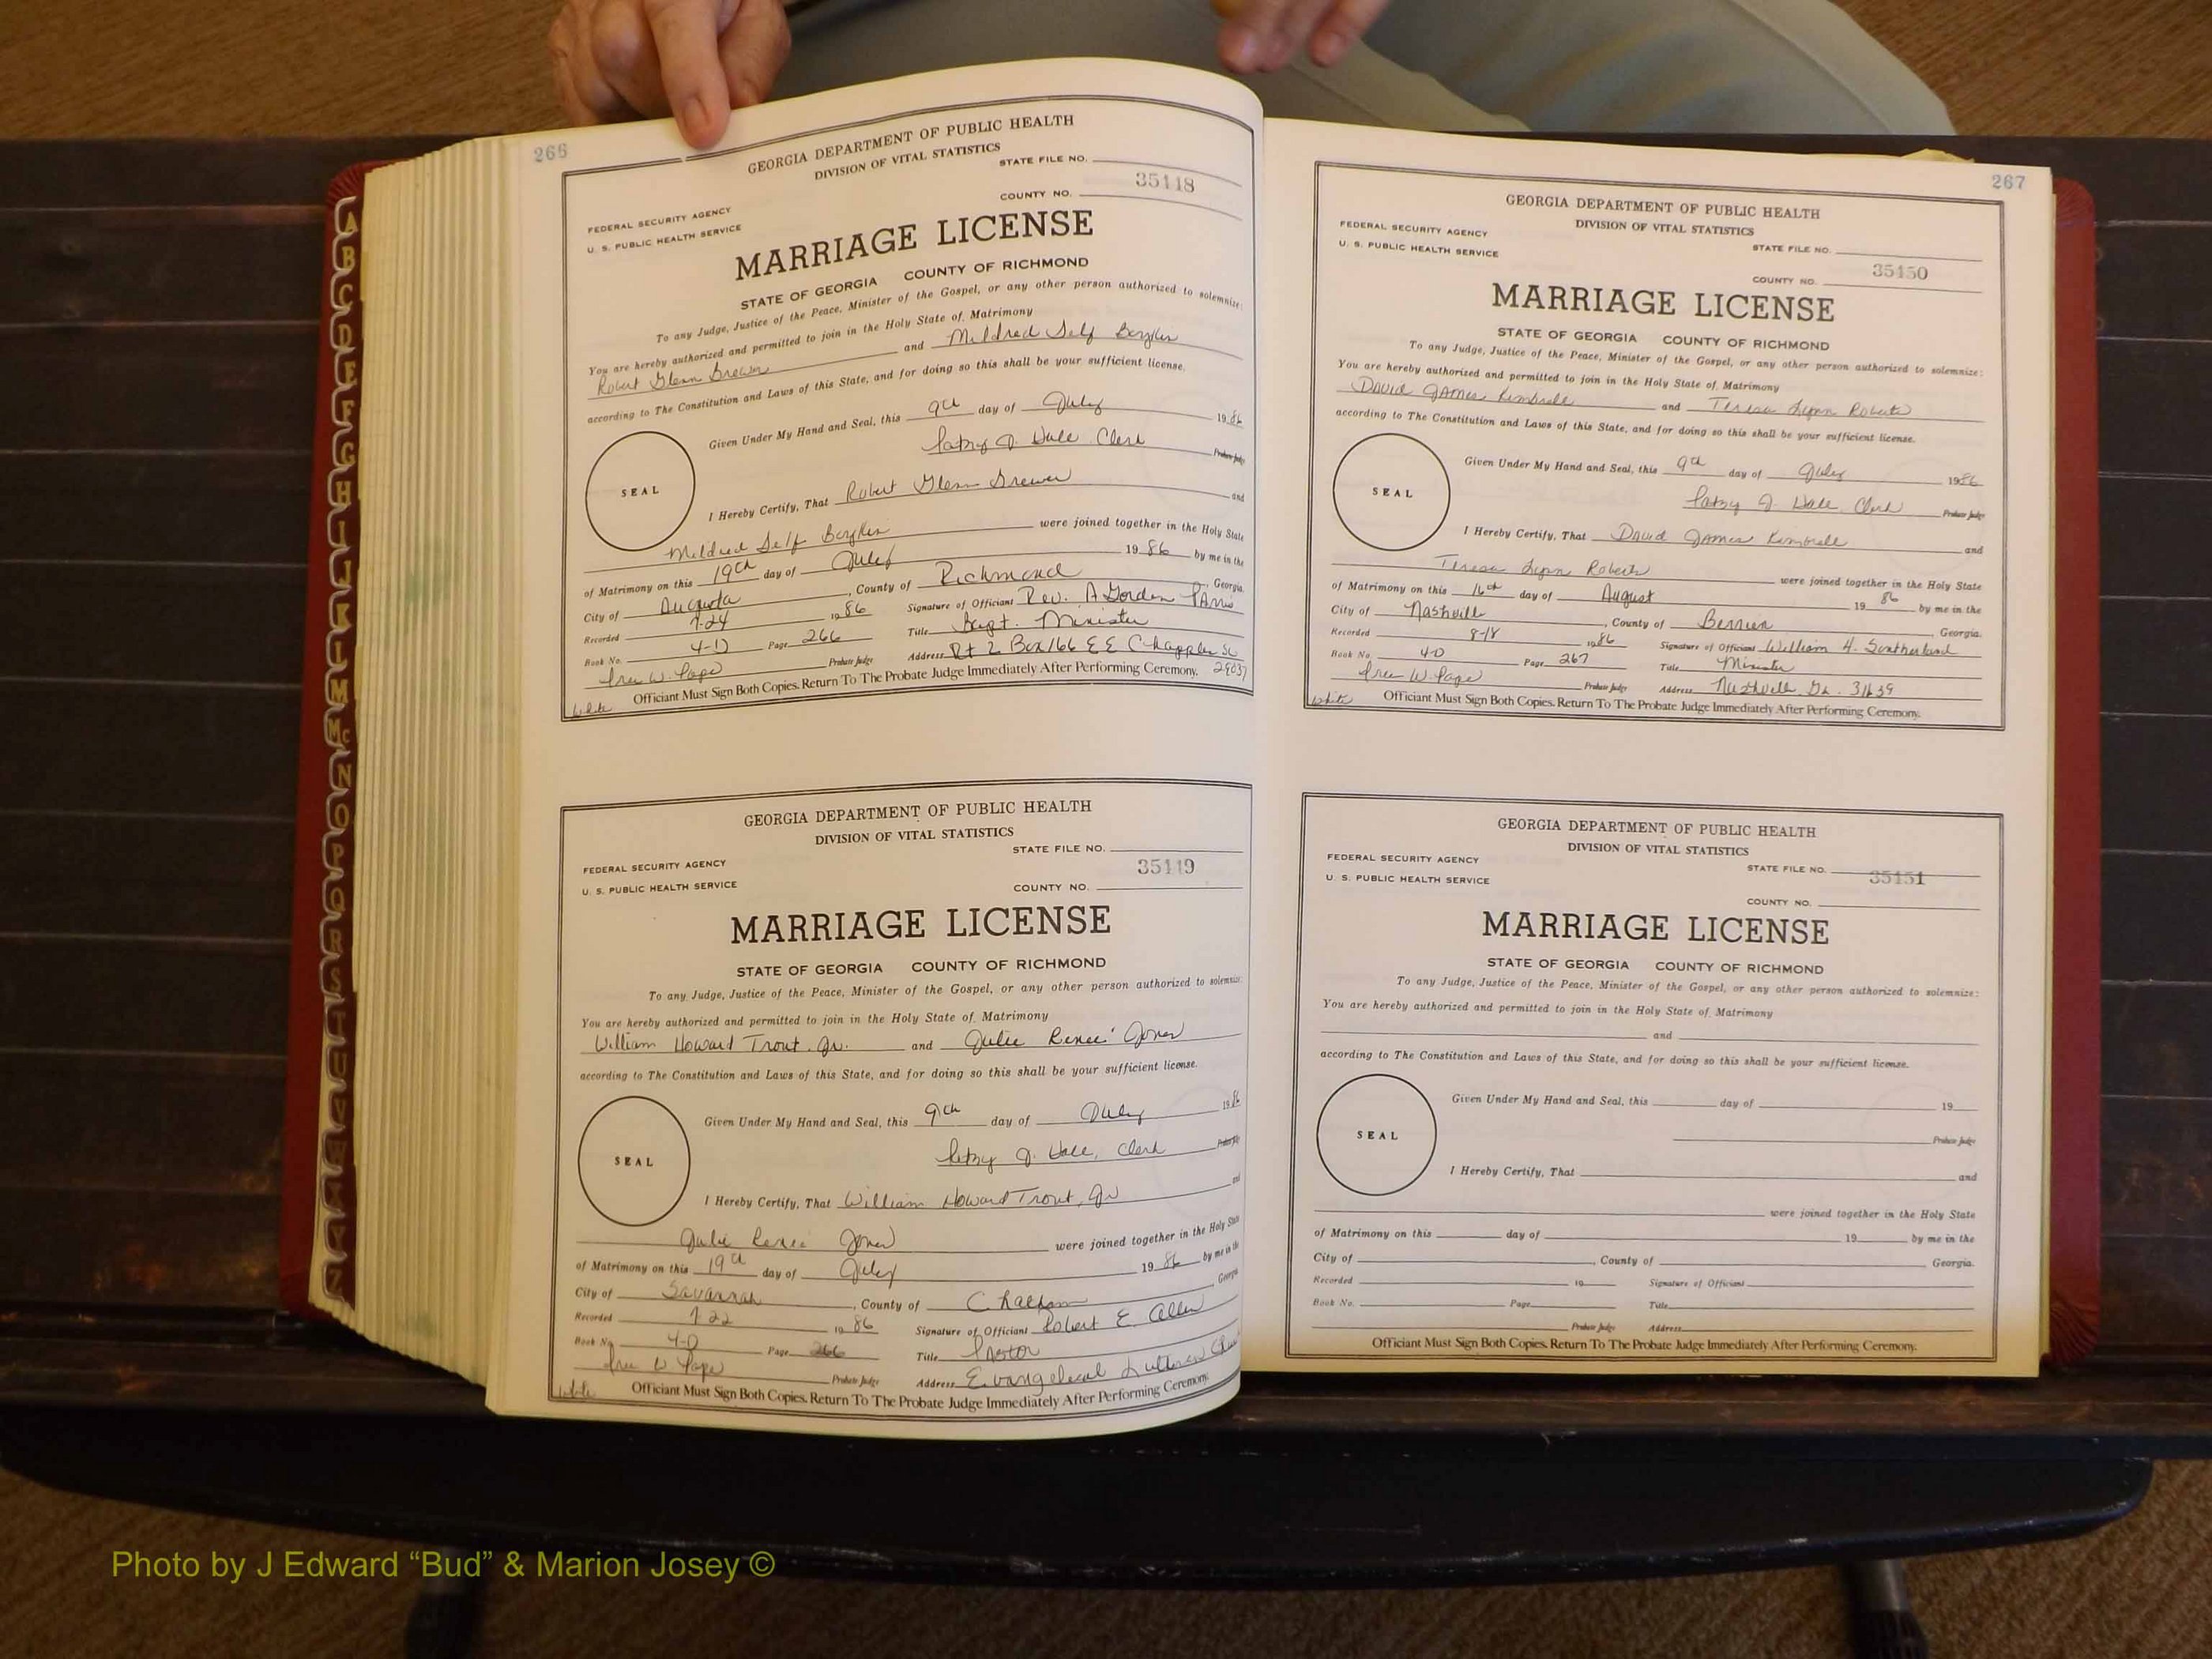 266
GEORGIA DEPARTMENT OF PUBLIC HEALTH
DIVISION OF VITAL STATISTICS
STATE FILE NO.
35448
FEDERAL SECURITY AGENCY
COUNTY NO.
U. S. PUBLIC HEALTH SERVICE
MARRIAGE LICENSE
STATE OF GEORGIA COUNTY OF RICHMOND
To any Judge, Justice of the Peace, Minister of the Gospel, or any other person authorized to solemnize:
You are hereby authorized and permitted to join in the Holy State of Matrimony
Robert Glenn Brewer and Mildred Self
according to The Constitution and Laws of this State, and for doing so this shall be your sufficient license.
Given Under My Hand and Seal, this 9th day of July 1986
Patsy J. Hale, Clerk Probate Judge
SEAL
I Hereby Certify, That Robert Glenn Brewer and
Mildred Self were joined together in the Holy State
of Matrimony on this 19th day of July 1986 by me in the
City of Augusta, County of Richmond, Georgia.
Recorded 7-24 1986 Signature of Officiant Rev. A Gordon
Book No. 4-D Page 266 Title Bapt. Minister
Probate Judge Address Rt 2 Box 166 E E Chappells SC 29037
White Officiant Must Sign Both Copies. Return To The Probate Judge Immediately After Performing Ceremony.
GEORGIA DEPARTMENT OF PUBLIC HEALTH
DIVISION OF VITAL STATISTICS
STATE FILE NO.
FEDERAL SECURITY AGENCY
35449
U. S. PUBLIC HEALTH SERVICE
COUNTY NO.
MARRIAGE LICENSE
STATE OF GEORGIA COUNTY OF RICHMOND
To any Judge, Justice of the Peace, Minister of the Gospel, or any other person authorized to solemnize:
You are hereby authorized and permitted to join in the Holy State of Matrimony
William Howard Trout, Jr. and Julie Renee' Jones
according to The Constitution and Laws of this State, and for doing so this shall be your sufficient license.
Given Under My Hand and Seal, this 9th day of July 1986
Patsy J. Hale, Clerk Probate Judge
SEAL
I Hereby Certify, That William Howard Trout, Jr and
Julie Renee Jones were joined together in the Holy State
of Matrimony on this 19th day of July 1986 by me in the
City of Savannah, County of Chatham Georgia
Recorded 7-22 1986 Signature of Officiant Robert E. Allen
Book No. 4-D Page 266 Title Pastor
Probate Judge Address Evangelical Lutheran
White Officiant Must Sign Both Copies. Return To The Probate Judge Immediately After Performing Ceremony.
267
GEORGIA DEPARTMENT OF PUBLIC HEALTH
DIVISION OF VITAL STATISTICS
FEDERAL SECURITY AGENCY
STATE FILE NO.
U. S. PUBLIC HEALTH SERVICE
35450
COUNTY NO.
MARRIAGE LICENSE
STATE OF GEORGIA COUNTY OF RICHMOND
To any Judge, Justice of the Peace, Minister of the Gospel, or any other person authorized to solemnize:
You are hereby authorized and permitted to join in the Holy State of Matrimony
David James Kimbrell and Teresa Lynn Roberts
according to The Constitution and Laws of this State, and for doing so this shall be your sufficient license.
Given Under My Hand and Seal, this 9th day of July 1986
Patsy J. Hale, Clerk Probate Judge
SEAL
I Hereby Certify, That David James Kimbrell and
Teresa Lynn Roberts were joined together in the Holy State
of Matrimony on this 16th day of August 1986 by me in the
City of Nashville, County of Berrien, Georgia.
Recorded 8-18 1986 Signature of Officiant William H. Southerland
Book No. 4-D Page 267 Title Minister
Probate Judge Address Nashville Ga. 31639
White Officiant Must Sign Both Copies. Return To The Probate Judge Immediately After Performing Ceremony.
GEORGIA DEPARTMENT OF PUBLIC HEALTH
DIVISION OF VITAL STATISTICS
FEDERAL SECURITY AGENCY
STATE FILE NO. 35451
U. S. PUBLIC HEALTH SERVICE
COUNTY NO.
MARRIAGE LICENSE
STATE OF GEORGIA COUNTY OF RICHMOND
To any Judge, Justice of the Peace, Minister of the Gospel, or any other person authorized to solemnize:
You are hereby authorized and permitted to join in the Holy State of Matrimony
and
according to The Constitution and Laws of this State, and for doing so this shall be your sufficient license.
Given Under My Hand and Seal, this day of 19
Probate Judge
SEAL
I Hereby Certify, That and
were joined together in the Holy State
of Matrimony on this day of 19 by me in the
City of , County of Georgia.
Recorded 19 Signature of Officiant
Book No. Page Title
Probate Judge Address
Officiant Must Sign Both Copies. Return To The Probate Judge Immediately After Performing Ceremony.
A
B
C
D
E
F
G
H
I
J
K
L
M
Mc
N
O
P
Q
R
S
T
U
V
W
X
Y
Z
Photo by J Edward “Bud” & Marion Josey ©